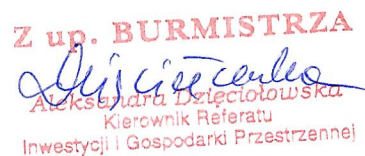 Z up. BURMISTRZA
Aleksandra Dzięciołowska
Kierownik Referatu
Inwestycji i Gospodarki Przestrzennej